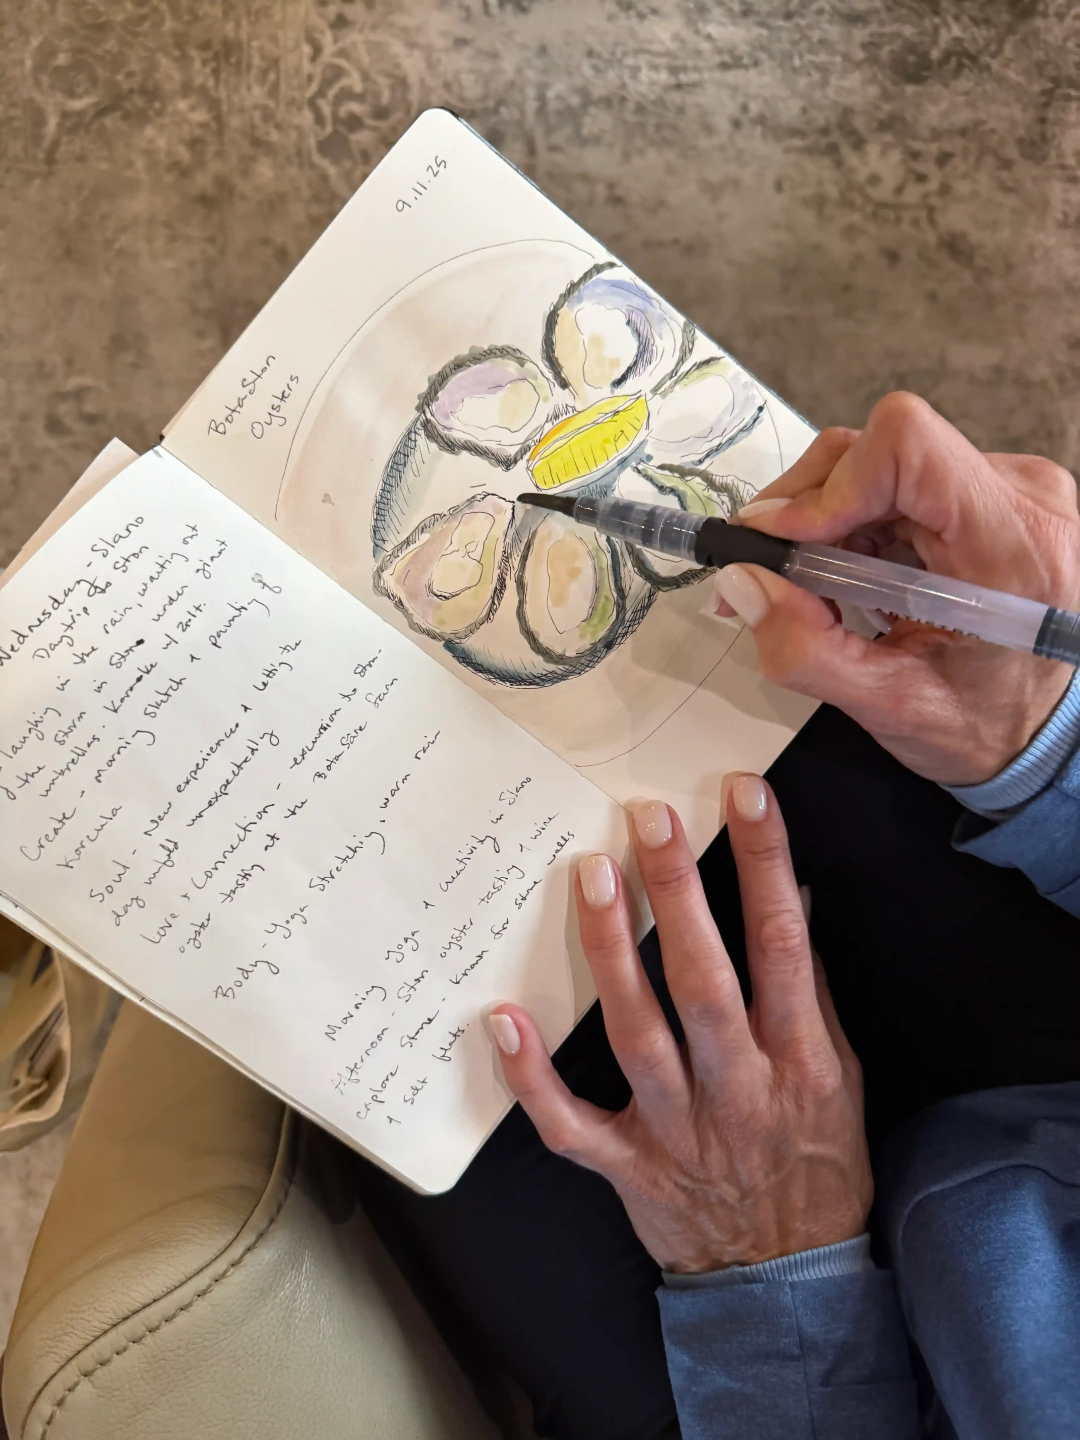 9.11.25
BotaSton
Oysters
Wednesday - Slano
Daytrip to Ston
laughing in the rain, waiting out
the storm in Ston under giant
umbrellas. Karaoke w/ Zolt.
Create - morning sketch + painting of
Korcula
Soul - New experiences + letting the
day unfold unexpectedly
Love + Connection - excursion to Ston -
oyster tasting at the BotaSare farm
Body - Yoga Stretching, warm rain
Morning Yoga + creativity in Slano
Afternoon - Ston oyster tasting + wine
explore Stone - known for stone walls
+ salt flats.